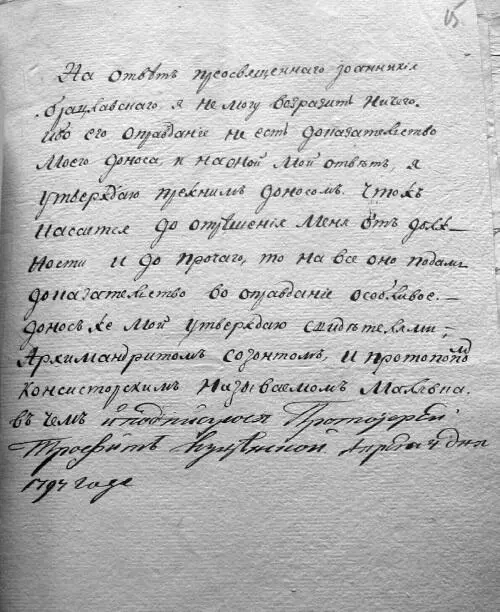 15.
На отвѣтъ преосвященнаго Іоанникія
Брацлавскаго я не могу возразить ничего.
Ибо его оправданіе не есть доказательство
моего доноса, и на оной мой отвѣтъ, я
утверждаю прежнимъ доносомъ. Что же
касается до отрѣшенія меня отъ долж-
ности и до прочаго, то на все оно подамъ
доказательство во оправданіе особливое.-
доносъ же мой утверждаю свидѣтелями,
Архимандритомъ созонтомъ, и протопопомъ
консисторскимъ называемомъ
въ чемъ и подписуюся Протоіерей
Трофимъ апреля 4 дня
1794 года